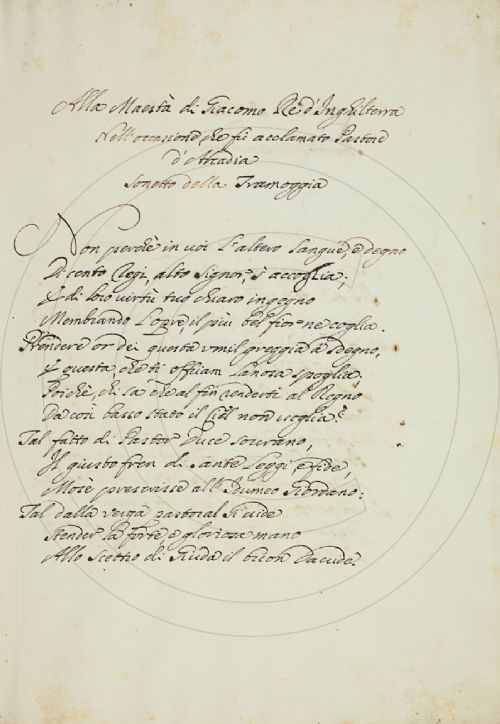 Alla Maestà di Giacomo Rè d'Inghilterra
Nell'occasione che fù acclamato Pastore
d'Arcadia
Sonetto della Tramoggia
Non perche in voi l'altero sangue, e degno
Di cento Regi, alto Signor, s'accoglia;
E di loro virtù tuo chiaro ingegno
Membrando l'opre il più bel fior ne coglia.
Prendere or dei questa umil greggia à sdegno,
E questa che ti offriam lanosa spoglia.
Poiche, chi sà che al fin renderti al Regno
Da così basso stato il Ciel non voglia?
Tal fatto di Pastor Duce sovrano,
Il giusto fren di sante Leggi, e fide,
Mosè prescrisse all' Idumeo Giordano:
Tal dalla verga pastoral si vide
Stender la forte, e gloriosa mano
Allo Scettro di Giuda il buon Davide.